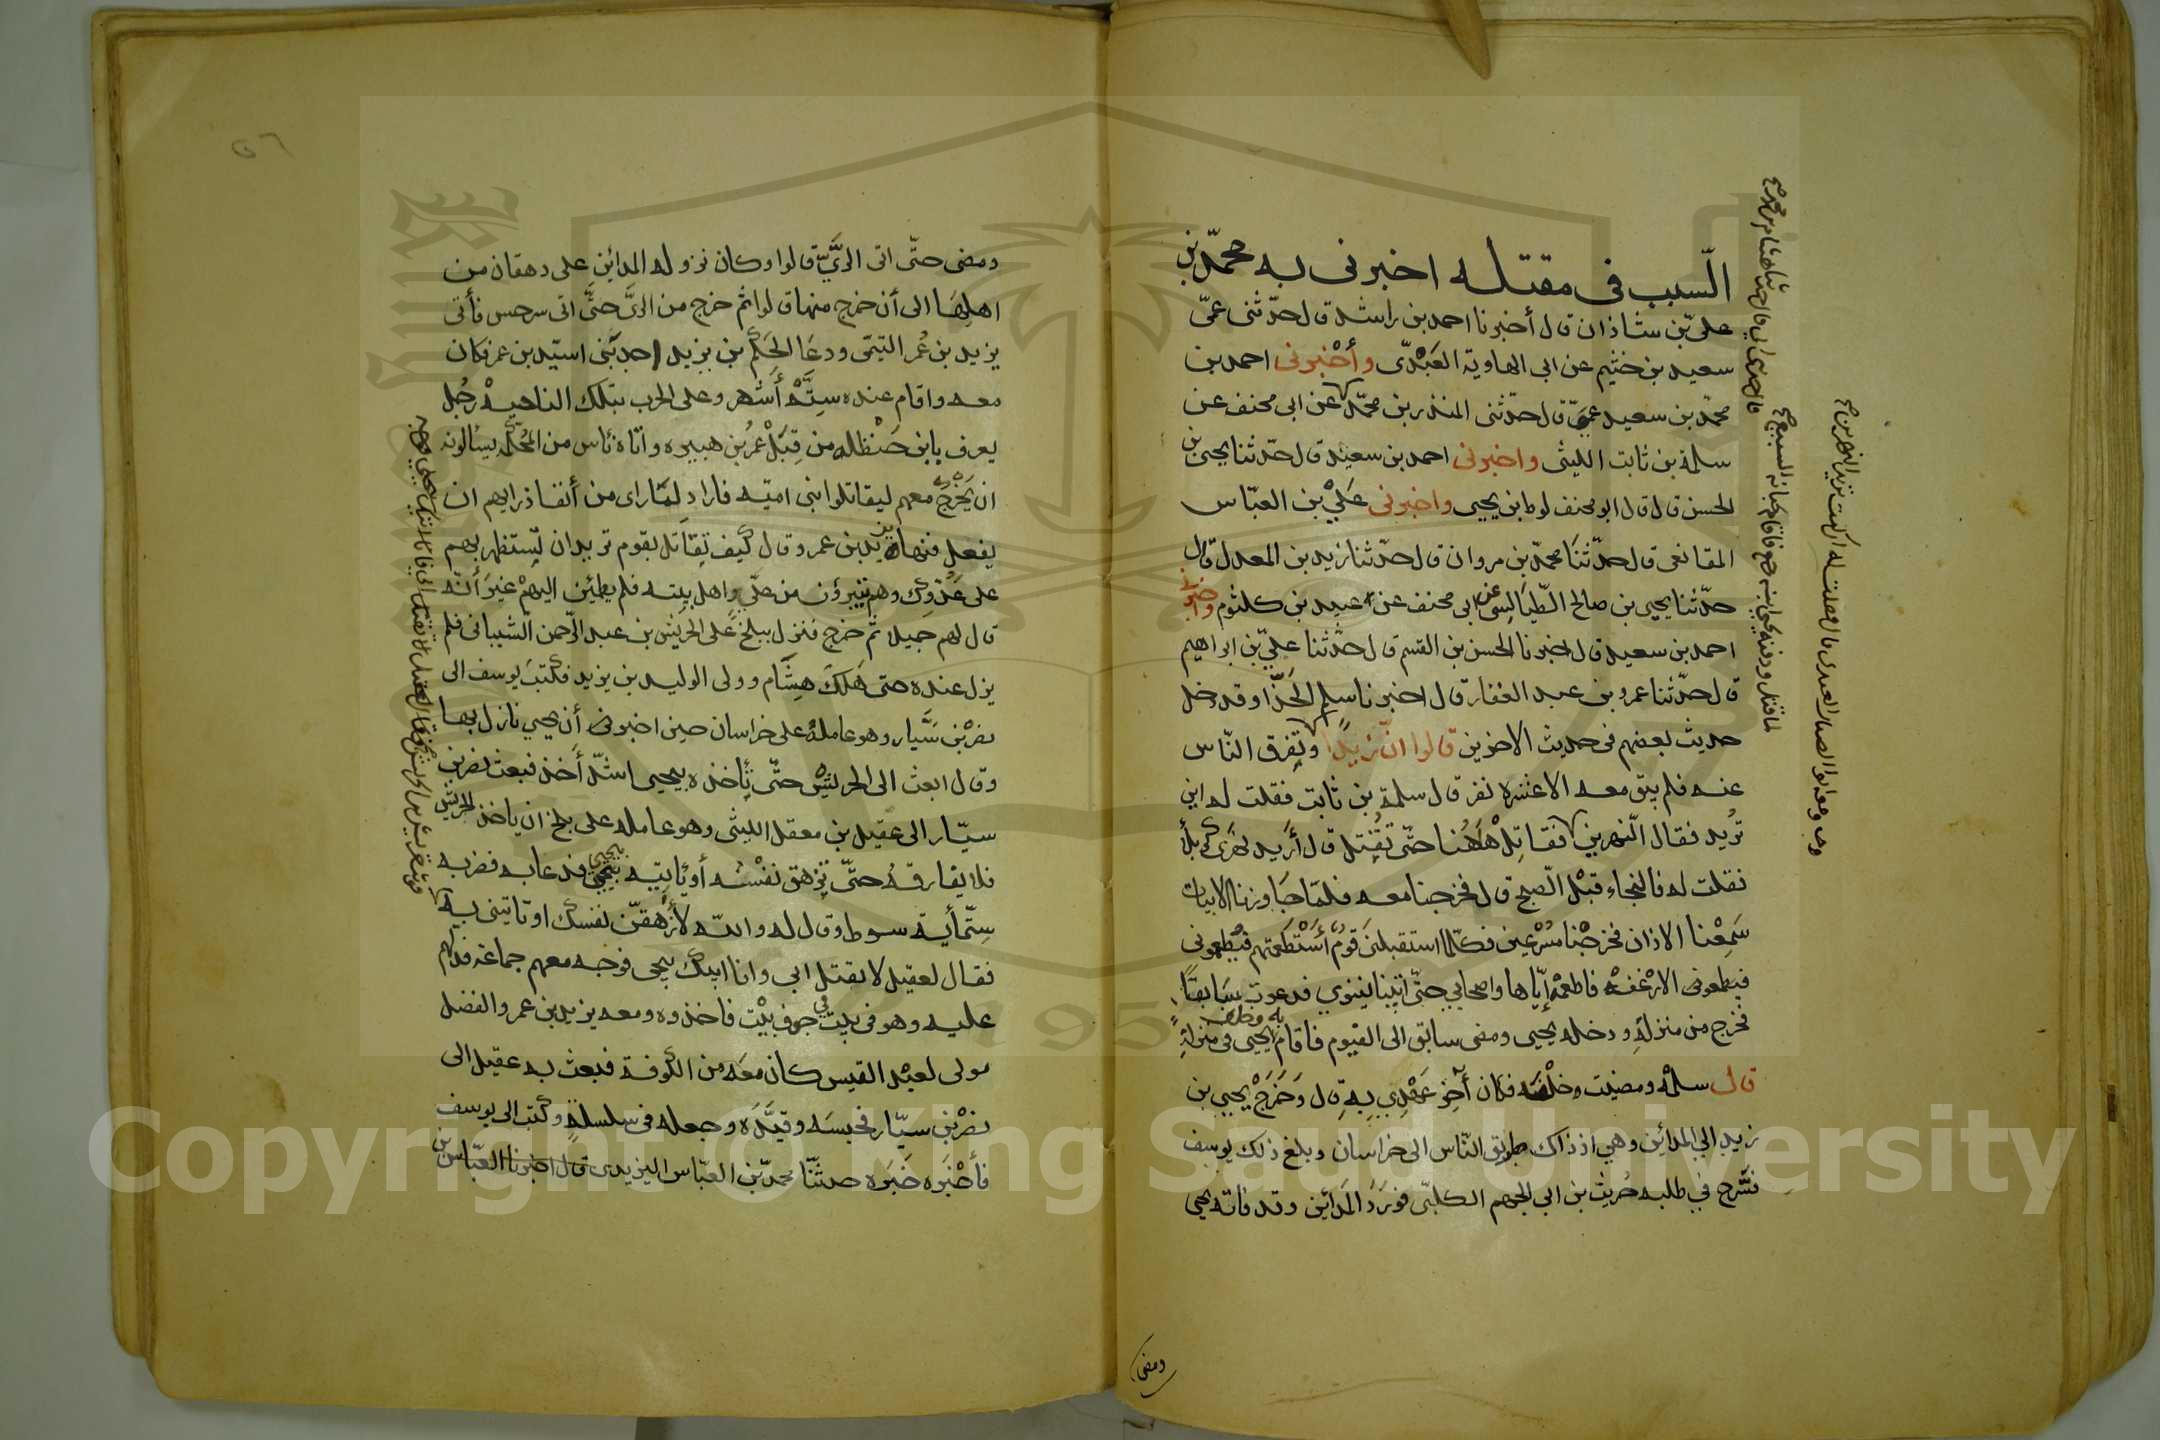 السّبب فى مقتله اخبرنى به محمّد بن
علىّ بن شاذان قال أخبرنا احمد بن راشد قال حدّثنى عمّى
سعيد بن خثيم عن ابى الهاوية العَبْدىّ وأخْبرنى احمد بن
محمّد بن سعيد قال حدّثنى المنذر بن محمّد عن ابى مخنف عن
سلمة بن ثابت الليثى واخبرنى احمد بن سعيد قال حدّثنا يحيى بن
الحسن قال قال ابو مخنف لوط بن يحيى واخبرنى عَلىّ بن العبّاس
المقانعى قال حدّثنَا محمّد بن مروان قال حدّثنا زيد بن المعدل قال
حدّثنا يحيى بن صالح الطّيَالِسى عن ابى مخنف عن عبيد بن كلثوم واخبرنى
احمد بن سعيد قال اخبرنا الحسن بن القسم قال حدّثنا علىّ بن ابراهيم
قال حدّثنا عمرو بن عبد الغفار قال اخبرنا سلم الحَذّا وقد دخل
حديث بعضهم فى حديث الاخرين قالوا انّ زيدًا وتفرق النّاس
عنه فلم يبق معه الا عشرة نفر قال سلمة بن ثابت فقلت له اين
تُريد فقال النّهرين فقاتِلْ هَاهُنا حتّى تُقْتل قال أُريد نهرَى كربلا
فقلت له فالنجاء قبْل الصبح قال فخرجنا معه فلمّا جَاوزنا الابيات
سَمِعْنا الاذان فخرجْنا مُسْرعين فكلّما استقبلنى قومٌ أسْتَطعمتهم فيُطعمونى
فيطعونى الارْغفة فاطعمْه إيّاها واصحابى حتّى أتينا نينوى فدعوت سَابقًا
فخرج من منزلهِ ودخله يحيى ومضى سابق الى الفيّوم فاقام به يحيى فى منزلهِ
قال سلمة ومضيت وخلّفته فكان آخر عَهْدِى بِه قال وَخَرَجْ يحيى بن
زيد الى المدائن وهى اذ ذاك طريق النّاس الى خراسان وبلغ ذلك يوسف
فسَّرح فى طلبه حُريث بن ابى الجهم الكلبىّ فورَدَ المدَائن وقد فاته يحيى
ومضى
ومضى حتّى اتى الرَّىّ قالوا وكان نزوله المدائن على دهقان من
اهلِهَا الى أن خرج منها قالوا ثم خرج من الرىّ حتَّى اتى سرخس فأتى
يزيد بن عُمر التيمّى ودعَا الحَكم بن يزيد احد بَنى اسيّد بن عمر فكان
معه واقام عنده سِتَّة أشهر وعلى الحرب بتلك الناحية رجُل
يعرف بابن حَنْظله من قِبَلْ عمُر بن هبيره واتاه ناس من المُحَكّمة يسالونه
ان يَخْرُجَ معهم ليقاتلوا بنى اميّه فاراد لمّا راى من أنفاذ رايهم ان
يفعل فنهاه يزيد بن عمر وقال كَيف تقَاتل بقوم تريد ان تستظهر بهم
على عَدُوّك وهم يتبرؤن من علىّ واهل بيته فلم يطمئن اليهمْ غيرَ أنّه
قال لهم جميلا ثم خرج فنزل ببلخ على الحريش بن عبد الرّحمن الشيبانى فلم
يزل عنده حتى هَلَكَ هِشَام وولى الوليد بن يزيد فكتبَ يوسف الى
نصْر بْن سَيَّار وهو عاملهُ على خراسان حين اخبر فى أن يحيى نازل بها
وقال ابعث الى الحريش حتّى يَأخذه بيحيى اشدّ أخذ فبعث نصر بن
سيّار الى عقيل بن معقل الليثى وهو عامله على بلخ ان ياخذ الحريش
فلا يفارقهُ حتىّ تزهق نفْسُه أو يَاتِيه بيحيى فدعا به فضربه
ستّمأية سوط وقال له والله لأزْهقنّ نفسك او تاتينى به
فقال لعقيل لا تقتل ابى وانا اتيك بيحى فوجه معهم جماعة فدلّهم
عليه وهو فى بيت فى جوف بيْت فاخذوه ومعه يزيد بن عمر والفضل
مولى لعبْد القيس كان معَه من الكوفة فبعث به عقيل الى
نصْر بْن سيّار فحبسَه وقيَّدَه وجعله فى سلسلةٍ وكتب الى يوسف
فأخْبَره خَبَره حدثَنَا محمّد بْن العبّاس اليزيدى قال اخبرنا العبّاس بن
Copyright © King Saud University
195